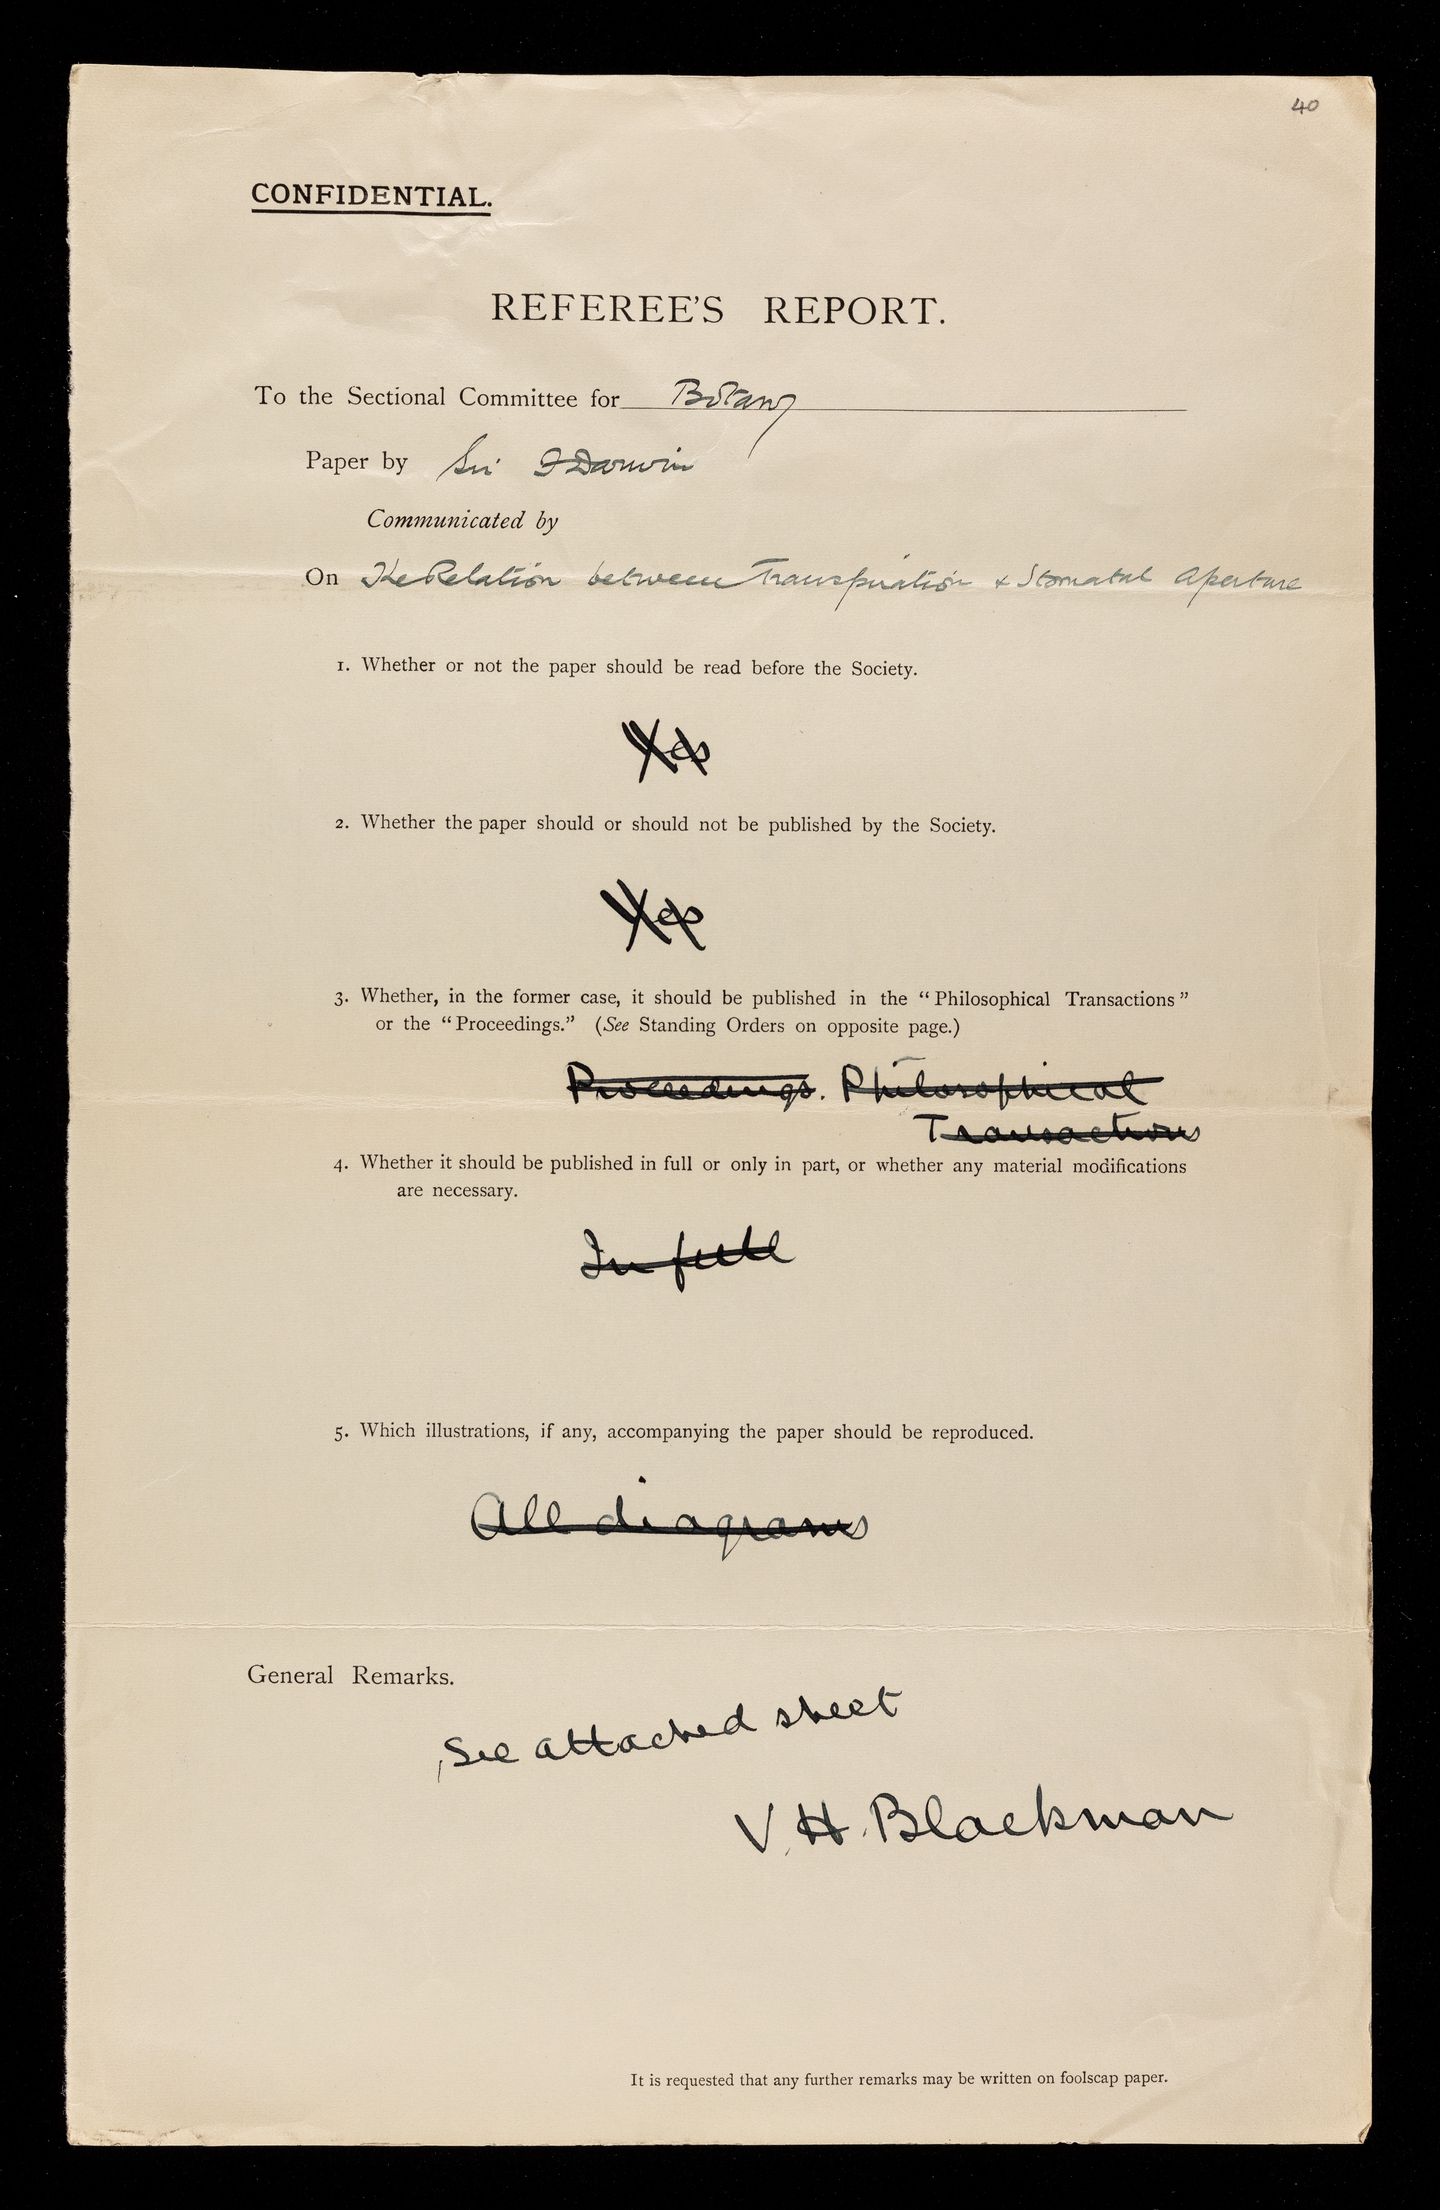 40
CONFIDENTIAL.
REFEREE'S REPORT.
To the Sectional Committee for Botany
Paper by Sir F Darwin
Communicated by
On The Relation between Transpiration & Stomatal Aperture
1. Whether or not the paper should be read before the Society.
Yes
2. Whether the paper should or should not be published by the Society.
Yes
3. Whether, in the former case, it should be published in the “Philosophical Transactions”
or the “Proceedings.” (See Standing Orders on opposite page.)
Proceedings. Philosophical
Transactions
4. Whether it should be published in full or only in part, or whether any material modifications
are necessary.
In full
5. Which illustrations, if any, accompanying the paper should be reproduced.
All diagrams
General Remarks.
See attached sheet
V. H. Blackman
It is requested that any further remarks may be written on foolscap paper.